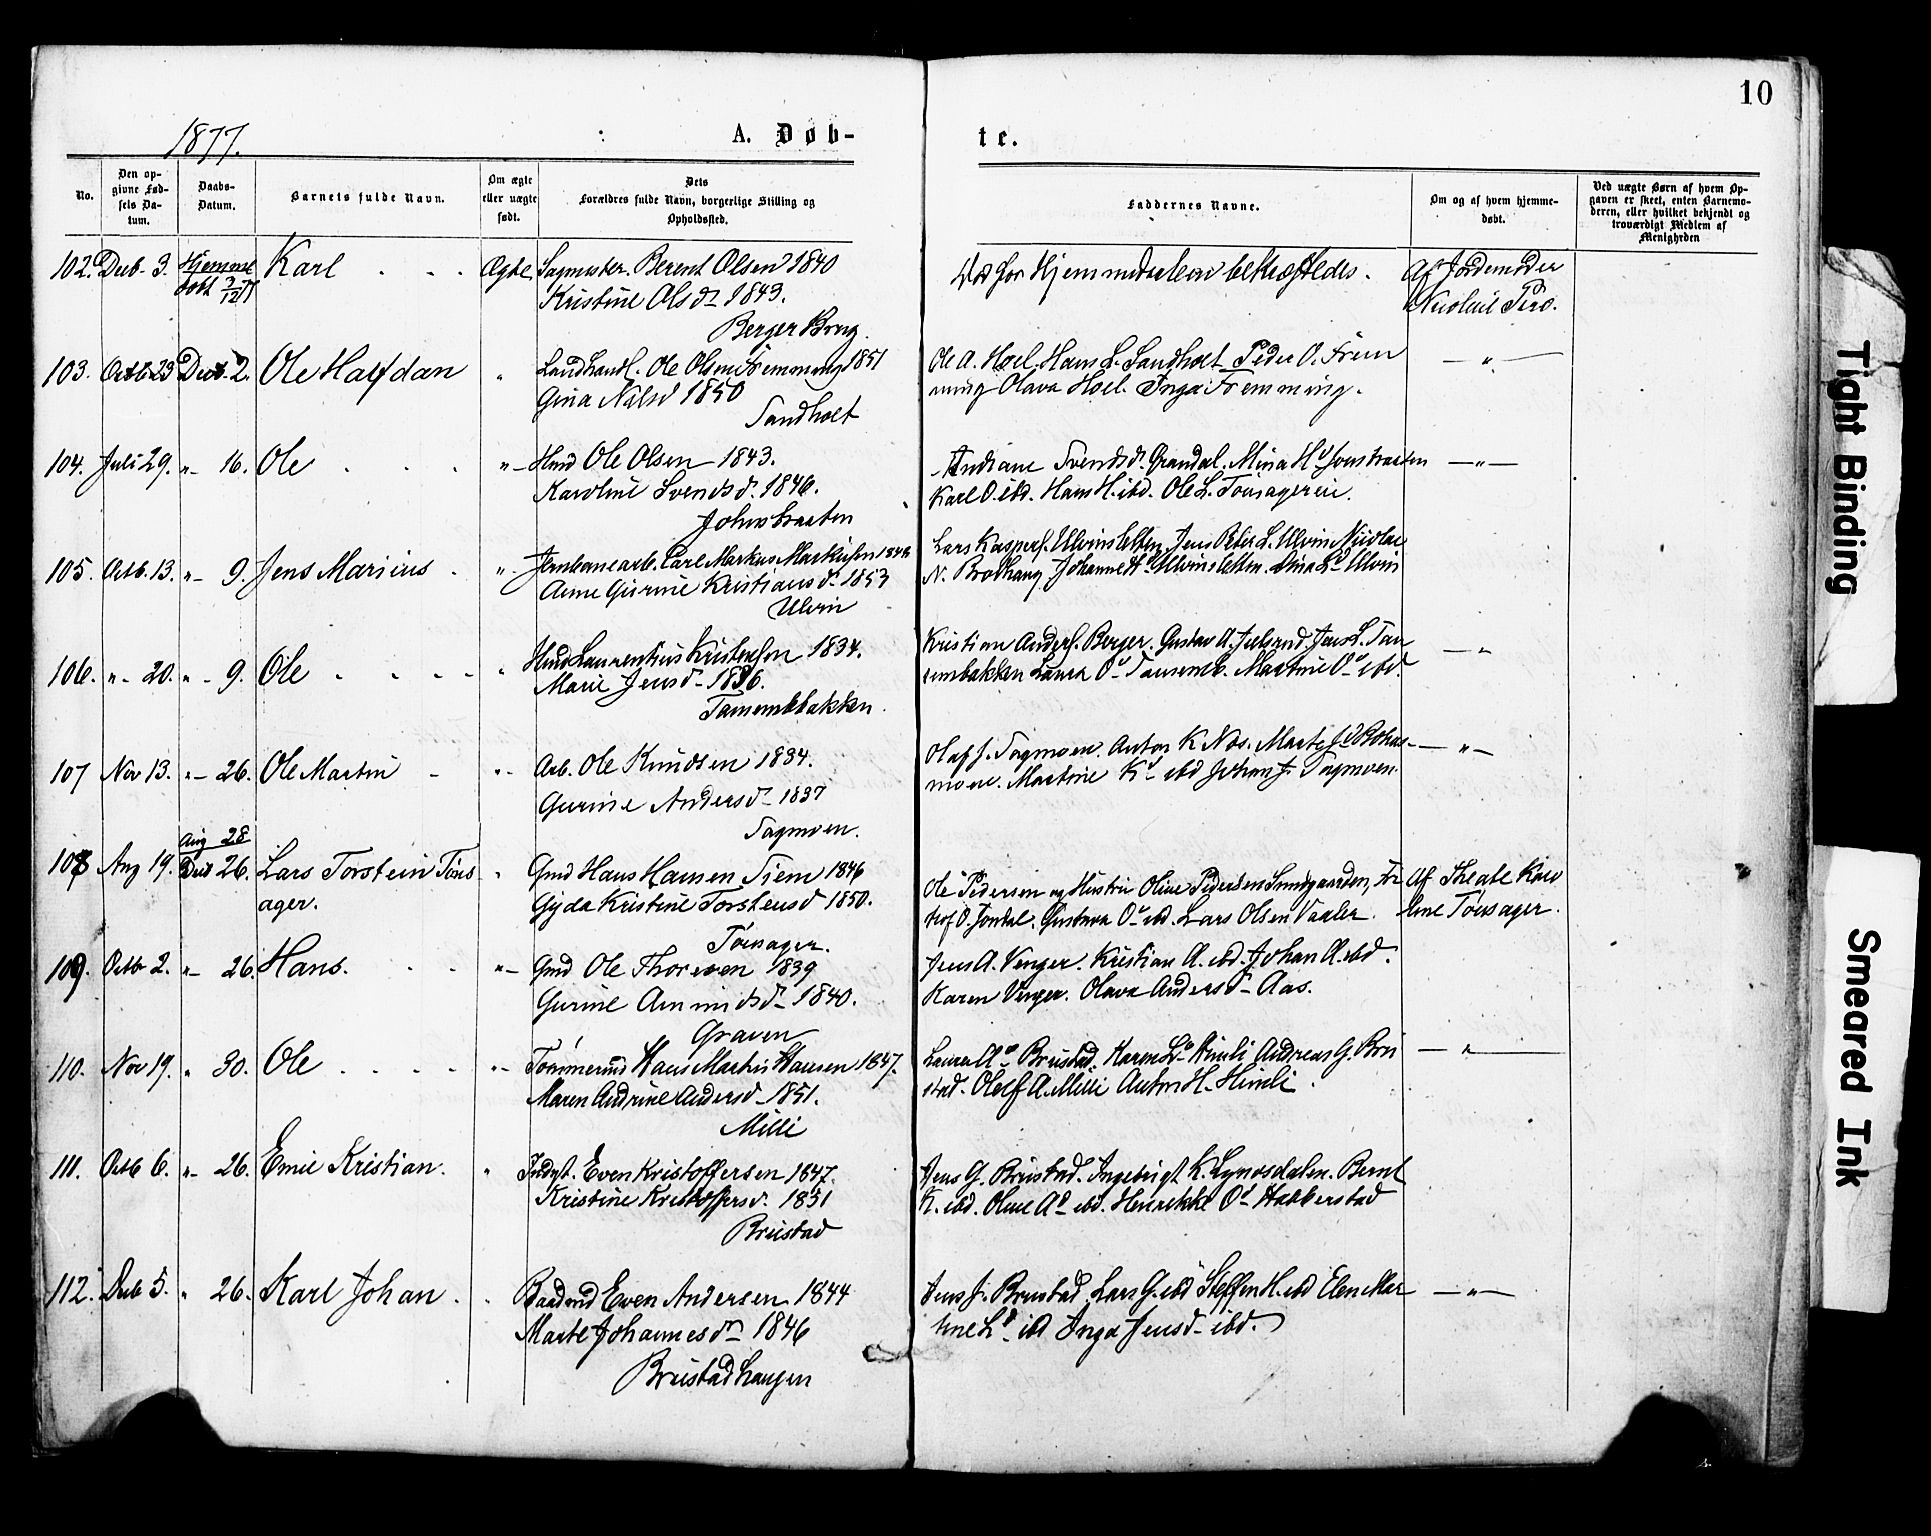 10
1877.
A. Døb-
te.
No.
Den op-
givne Fød-
sels Da-
tum.
Daabs-
Datum.
Barnets fulde Navn.
Om ægte
eller uægte
født.
Dets
Forældres fulde Navn, borgerlige Stilling og
Opholdssted.
Faddernes Navne.
Om og af hvem hjemme-
døbt.
Ved uægte Børn af hvem Op-
gaven er skeet, enten Barnemo-
deren, eller hvilket bekjendt og
troværdigt Medlem af
Menigheden
102. Decb. 3. Hjemme Karl Ægte Sagmester. Berent Olsen 1840
døbt 3/12 77 Kristine Olsd. 1843.
Berger Brug.
Hjemmedaaben bekræftedes. Af Jordemoder
103. Octb 23 Decb. 2. Ole Halfdan " Landhandl. Ole Olsen Fremming 1851
Gina Nilsd 1850
Sandholt
Ole A. Hoel. Hans L. Sandholt Peder O. Frem
ming Olava Hoel. Inga Fremming. — " —
104. Juli 29. "- 16. Ole "- Hmd Ole Olsen 1843.
Karoline Svendsd. 1846.
Svendsd. Grandal. Mina
Karl O. ibd. Hans H. ibd. Ole L. — " —
105. Octb. 13. "- 9. Jens Marius "- Jernbanearb. Carl Markus 1848
Anne Gurine Kristiansd. 1853
Ulvin
Lars Kaspers. Ulvinsletten Jens Peter L. Ulvin Nicolai
N. Brodhaug. Johanne Ulvinsletten. Dina Ld Ulvin
106. "- 20. "- 9. Ole " Hmd Laurentius Kristensen 1834.
Marie Jensd. 1836.
Kristian Anders. Berger. Gustav A. Julsrud Jens L. Tau
sembakken Laura Od Martine Od ibd. — "
107 Nov 13. "- 26. Ole Martin "- Arb. Ole Knudsen 1834.
Gurine Andersd. 1837
Sagmoen.
Olaf J. Sagmoen. Anton K Nos. Marte
moen. Martine Kd ibd Johan J. Sagmoen. — " —
Aug 28
108 Aug 19. Decb 26. Lars Torstein Tøns " Gmd Hans Hansen Siem 1846
ager. Gyda Kristine Torstensd 1850.
Tønsager.
Ole Pedersen og Hustru Oline Pedersen Sundgaarden,
Gustava Od ibd. Lars Olsen Vaaler. Af
Tønsager.
109. Octb 2. "- 26. Hans. "- Gmd Ole Thoresen 1839
Gurine Amundsd. 1840.
Graven
Jens A. Venger. Kristian A. ibd. Johan A. ibd.
Karen Venger. Olava Andersd. Aas.
110. Nov 19. " 30. Ole "- Tømmermd Hans Martin Hansen 1847.
Maren Andrine Andersd. 1851.
Milli
Laura Ad Brustad. Karen Ld Himli Andreas G. Bru
stad. Oluf A. Milli Anton H. Himli. — " —
111. Octb 6. "- 26. Emil Kristian. " Indst. Even Kristoffersen 1847.
Kristine Kristoffersd. 1851
Brustad
Jens G. Brustad. Ingebrigt K. Bernt
K. ibd. Oline Ad ibd. Henrikke Od Habberstad
112. Decb 5. " 26. Karl Johan. " Baadmd Even Andersen 1844
Marte Johannesd. 1846
Brustadhaugen
Jens J. Brustad. Lars G. ibd Steffen H. ibd Elen Mar
tine Ld ibd Inga Jensd. ibd. — " —
Tight Binding
Smeared Ink